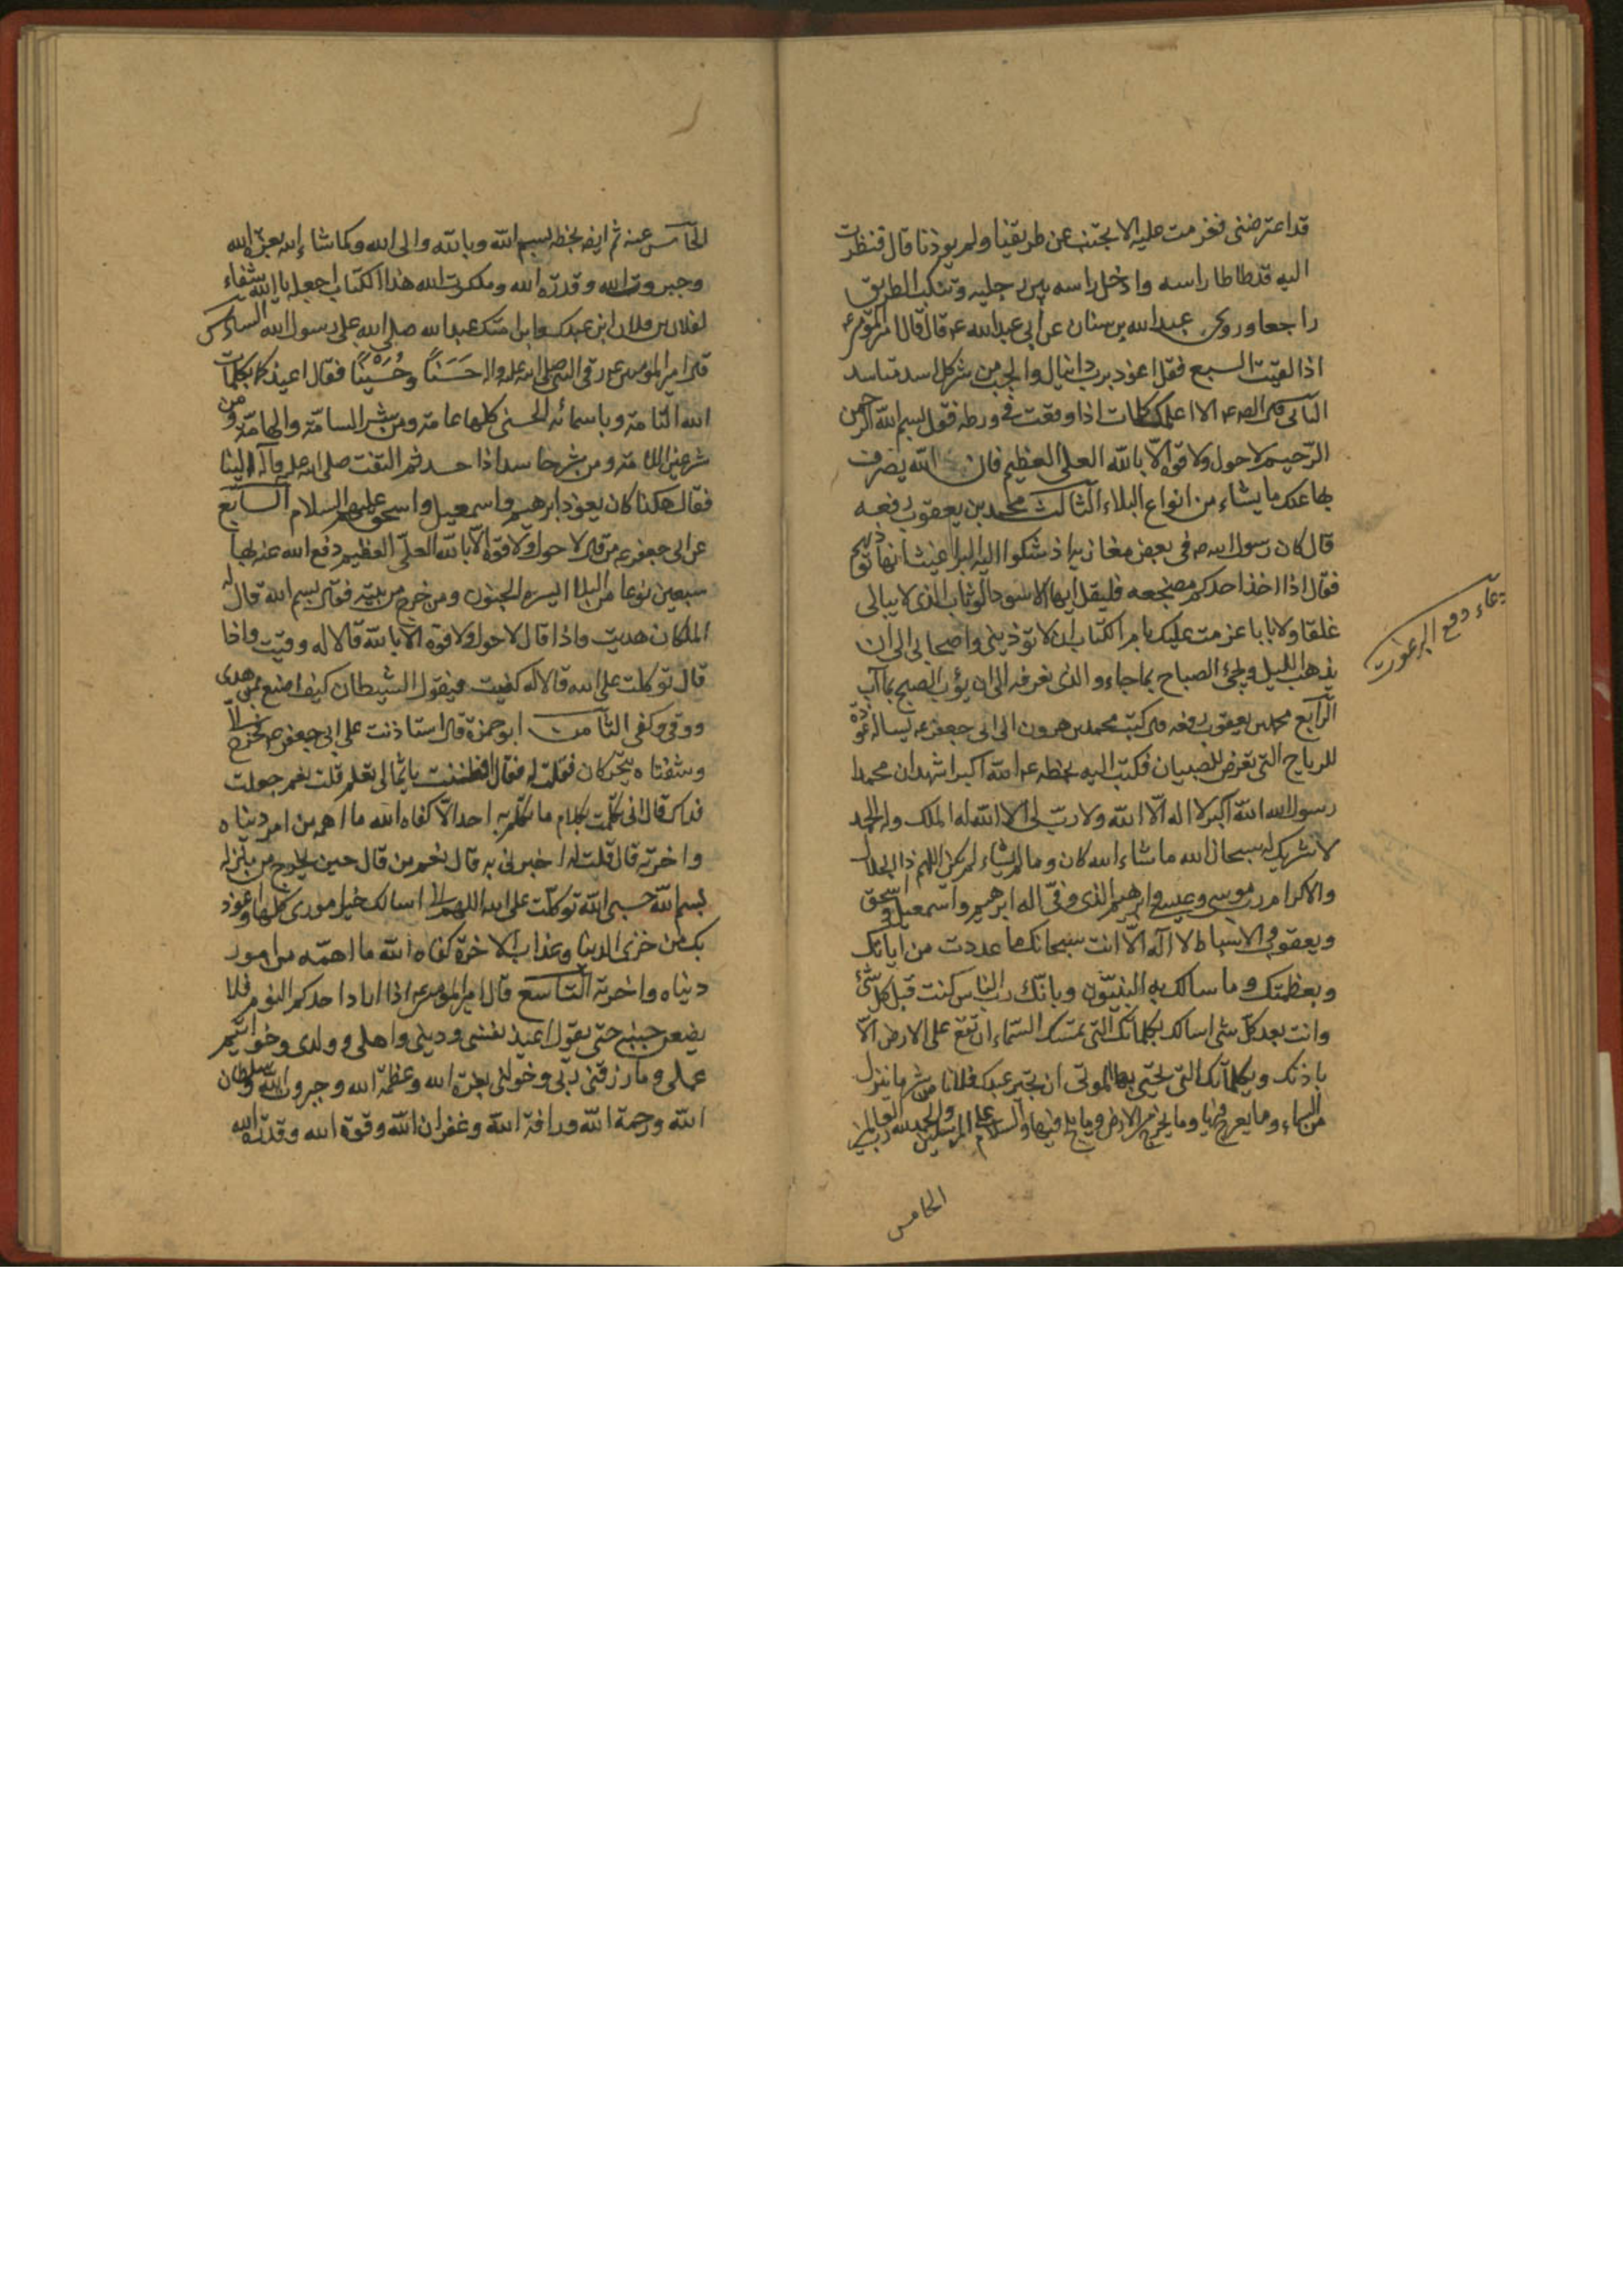 قد اعترضنى فعزمت عليه الا تجتنب عن طريقنا ولم يوذنا قال فنظرت
اليه قد طاطا راسه وادخل راسه بين رجليه وتنكب الطريق
راجعا وروى عبد الله بن سنان عن ابى عبد الله ع قال قال امير المومنين ع
اذا لقيت السبع فقل اعوذ برب دانيال والجب من شر كل اسد مستاسد
الثانى قال الا اعلمك كلمات اذا وقعت فى ورطه فقل بسم الله الرحمن
الرحيم لا حول ولا قوة الا بالله العلى العظيم فان الله يصرف
بها عنك ما يشاء من انواع البلاء الثالث محمد بن يعقوب رفعه
قال كان رسول الله ص فى بعض مغازيه اذ شكوا اليه البراغيث انها توذيهم
فقال اذا اخذ احدكم مضجعه فليقل ايها الاسود الوثاب الذى لا يبالى
غلقا ولا بابا عزمت عليك بام الكتاب ان لا توذينى واصحابى الى ان
يذهب الليل ويجئ الصباح بما جاء والذى نعرفه الى ان يؤب الصبح بما آب
دعاء دفع البرغوث
الرابع محمد بن يعقوب رفعه قال كتب محمد بن هرون الى ابى جعفر ع يساله عوذة
للرياح التى تعرض للصبيان فكتب اليه بخطه ع الله اكبر اشهد ان محمدا
رسول الله الله اكبر لا اله الا الله ولا رب لى الا الله له الملك وله الحمد
لا شريك له سبحان الله ما شاء الله كان وما لم يشاء لم يكن اللهم ذا الجلال
والاكرام رب موسى وعيسى وابرهيم الذى وفى اله ابرهيم واسمعيل واسحق
ويعقوب والاسباط لا اله الا انت سبحانك ما عددت من اياتك
وبعظمتك وما سالك به النبيون وبانك رب الناس كنت قبل كل شئ
وانت بعد كل شى اسالك بكلماتك التى تمسك السماء ان تقع على الارض الا
باذنك وبكلماتك التى تحيى بها الموتى ان تجير عبدك فلانا من شر ما ينزل
من السماء وما يعرج فيها وما يخرج من الارض وما يلج فيها والسلام على المرسلين والحمد لله رب العالمين
الخامس
الخامس عنه ثم ايضه بخطه بسم الله وبالله والى الله وكما شاء الله بعزة الله
وجبروت الله وقدرة الله وملكوت الله هذا الكتاب اجعله يا الله شفاء
لفلان بن فلان ابن عبدك وابن امتك عبد الله صلى الله على رسول الله السادس
قال امير المومنين ع رقى النبى صلى الله عليه واله حَسَنًا وحُسَيْنًا فقال اعيذكما بكلمات
الله التامة وباسمائه الحسنى كلها عامة ومن شر السامة والهامة ومن
شر عين اللامة ومن شر حاسد اذا حسد ثم التفت صلى الله عليه وآله الينا
فقال هكذا كان يعوذ ابرهيم واسمعيل واسحق عليهم السلام السابع
عن ابى جعفر ع من قال لا حول ولا قوة الا بالله العلى العظيم دفع الله عنه بها
سبعين نوعا من البلا ايسره الجنون ومن خرج من بيته فقال بسم الله قال له
الملكان هديت واذا قال لا حول ولا قوة الا بالله قالا له وقيت واذا
قال توكلت على الله قالا له كفيت فيقول الشيطان كيف اصنع بمن هدى
ووقى وكفى الثامن ابو حمزة قال استاذنت على ابى جعفر ع فخرج الى
وشفتاه يتحركان فقلت له فقال افطنت يا ثمالى بعلم قلت نعم جعلت
فداك قال انى تكلمت بكلام ما تكلم به احد الا كفاه الله ما اهمه من امر دنياه
واخرته قال قلت له اخبرنى به قال نعم من قال حين يخرج من منزله
بسم الله حسبى الله توكلت على الله اللهم انى اسالك خير امورى كلها واعوذ
بك من خزى الدنيا وعذاب الاخرة كفاه الله ما اهمه من امور
دنياه واخرته التاسع قال امير المومنين ع اذا اراد احدكم النوم فلا
يضعن جنبه حتى يقول اعيذ نفسى ودينى واهلى وولدى وخواتيم
عملى وما رزقنى ربى وخولنى بعزة الله وعظمة الله وجبروت الله وسلطان
الله ورحمة الله ورافة الله وغفران الله وقوة الله وقدرة الله